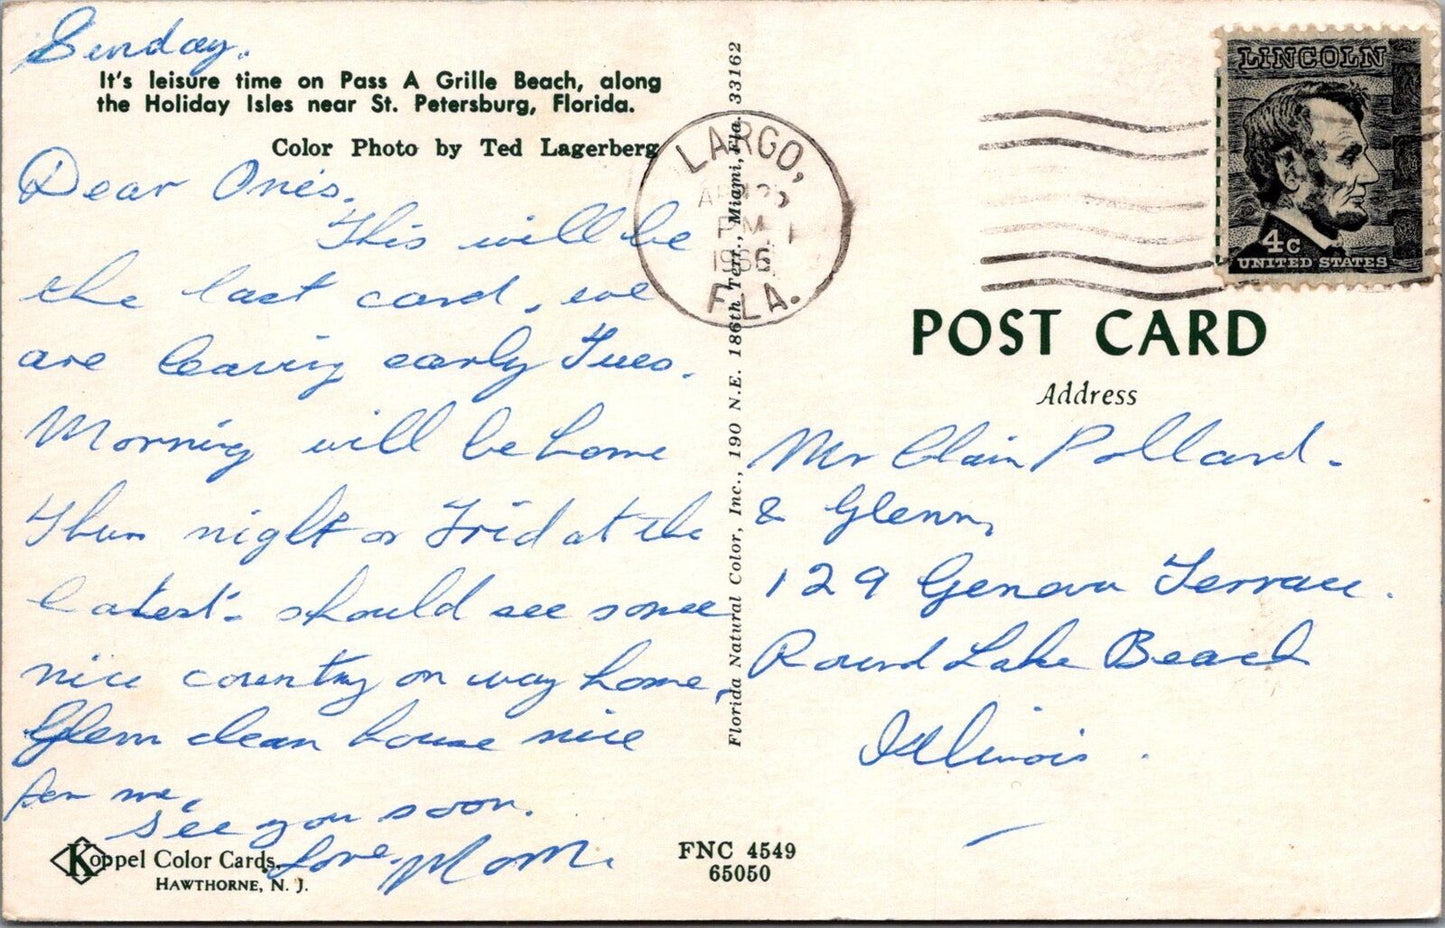 Sunday.
It's leisure time on Pass A Grille Beach, along
the Holiday Isles near St. Petersburg, Florida.
Color Photo by Ted Lagerberg
Dear One's.
This will be
the last card, we
are leaving early Tues.
Morning will be home
Thur night or Frid at the
latest. should see some
nice country on way home,
Glenn clean house nice
for me,
See you soon.
Love. Mom.
Koppel Color Cards
HAWTHORNE, N. J.
Florida Natural Color, Inc., 190 N.E. 186th Terr., Miami, Fla. 33162
FNC 4549
65050
LARGO,
PM
1966
FLA.
LINCOLN
4c
UNITED STATES
POST CARD
Address
Mr Clain Pollard.
& Glenn,
129 Geneva Terrace.
Round Lake Beach
Illinois.